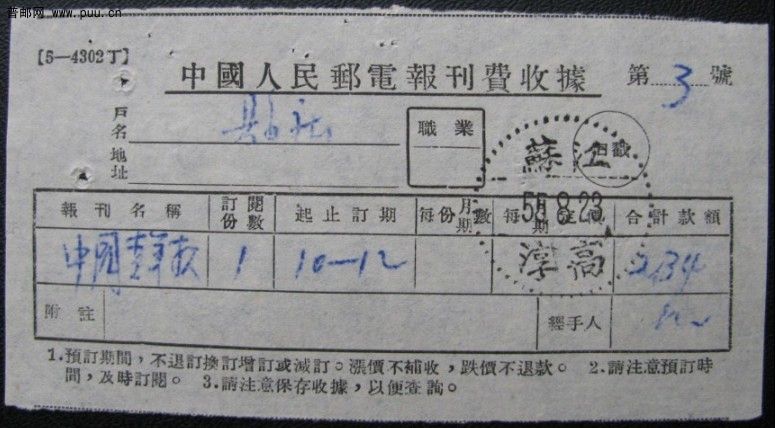 普邮网 www.puu.cn
[5—4302丁]
中國人民郵電報刊費收據 第3號
戶名
地址
職業
日戳
蘇江
55.8.23
淳高
報刊名稱 訂閱份數 起止訂期 每份月期數 每月期 合計款額
中國青年報 1 10—12 2.34
附註 經手人
1.預訂期間，不退訂換訂增訂或減訂。漲價不補收，跌價不退款。 2.請注意預訂時
間，及時訂閱。 3.請注意保存收據，以便查詢。